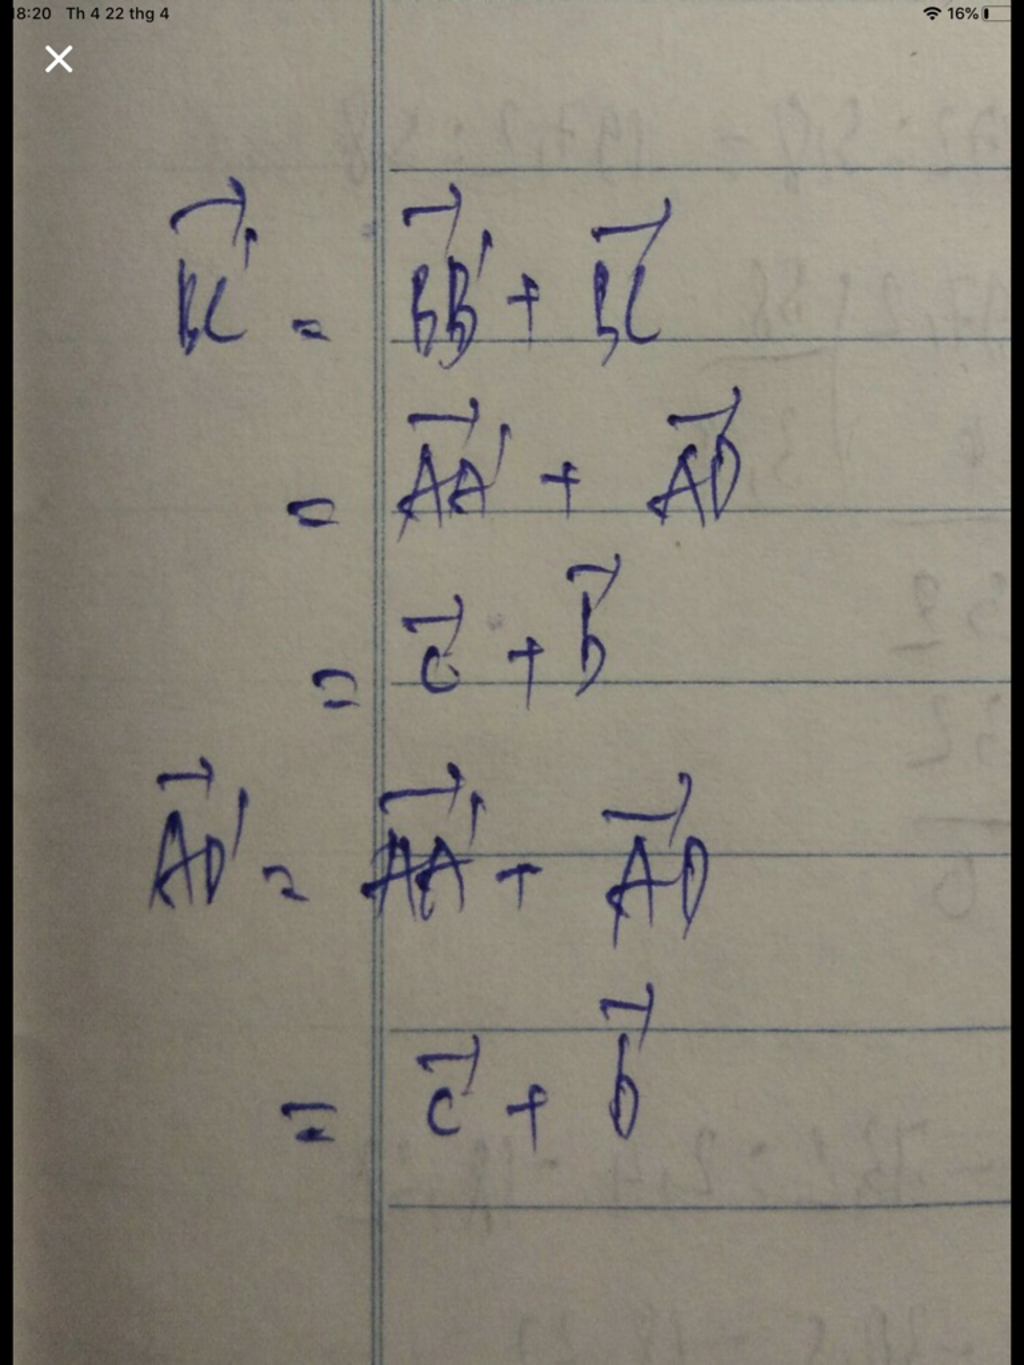 18:20 Th 4 22 thg 4 16%
$\overrightarrow{BC'} = \overrightarrow{BB'} + \overrightarrow{BC}$
$= \overrightarrow{AA'} + \overrightarrow{AD}$
$= \vec{c} + \vec{b}$
$\overrightarrow{AD'} = \overrightarrow{AA'} + \overrightarrow{AD}$
$= \vec{c} + \vec{b}$